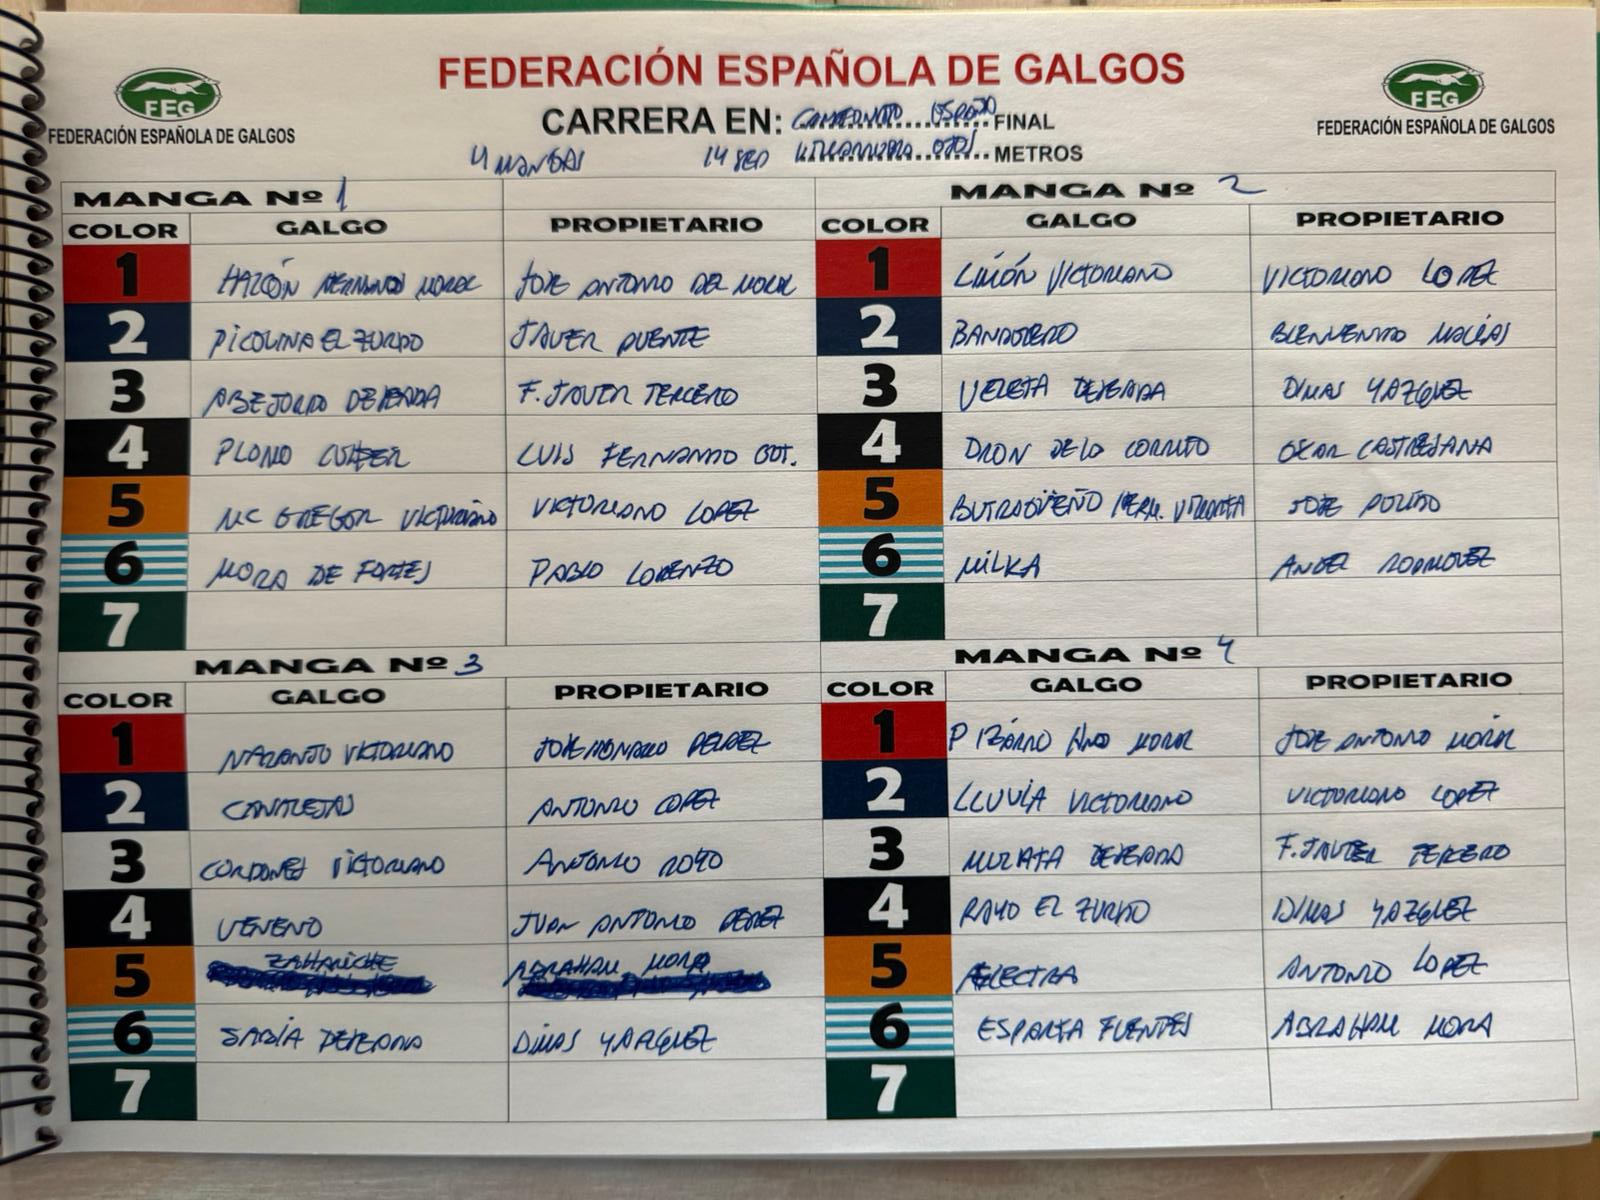 FEDERACIÓN ESPAÑOLA DE GALGOS
FEG
FEDERACIÓN ESPAÑOLA DE GALGOS
FEG
FEDERACIÓN ESPAÑOLA DE GALGOS
CARRERA EN: CAMPEONATO ESPAÑA FINAL
4 MANGAS 14 SEP METROS
MANGA Nº 1
COLOR GALGO PROPIETARIO
1 HALCÓN HERMANOS MORAL JOSE ANTONIO DEL MORAL
2 PICOLINA EL ZURDO JAVIER PUENTE
3 ABEJORRO DEJEADA F. JAVIER TERCERO
4 PLOMO LUIS FERNANDO GUT.
5 MC GREGOR VICTORIANO VICTORIANO LOPEZ
6 MORA DE FORTES PABLO LORENZO
7
MANGA Nº 2
COLOR GALGO PROPIETARIO
1 LIMÓN VICTORIANO VICTORIANO LOPEZ
2 BANDOLERO BIENVENIDO MACÍAS
3 VELETA DEJEADA DIMAS YAZQUEZ
4 DRON DE LO CORRITO OSCAR CASTRESANA
5 BUTRAGÜEÑO HERM. JOSE PULIDO
6 MILKA ANGEL RODRIGUEZ
7
MANGA Nº 3
COLOR GALGO PROPIETARIO
1 NARANJO VICTORIANO JOSE PEREZ
2 CANALEJAS ANTONIO LOPEZ
3 CORDONES VICTORIANO ANTONIO ROYO
4 VENENO JUAN ANTONIO PEREZ
5 ZAHARICHE ABRAHAM MORA
6 SABIA DEJEADA DIMAS YAZQUEZ
7
MANGA Nº 4
COLOR GALGO PROPIETARIO
1 PIZARRO HNOS MORAL JOSE ANTONIO MORAL
2 LLUVIA VICTORIANO VICTORIANO LOPEZ
3 MULATA DEJEADA F. JAVIER TERCERO
4 RAYO EL ZURDO DIMAS YAZQUEZ
5 ELECTRA ANTONIO LOPEZ
6 ESPARTA FUENTES ABRAHAM MORA
7